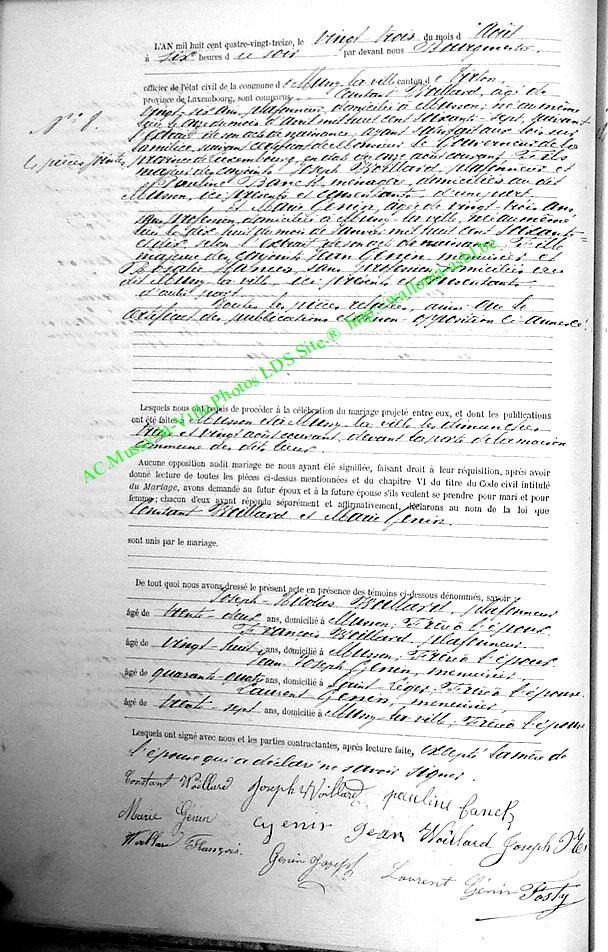 L'AN mil huit cent quatre-vingt-treize, le vingt trois du mois d'Août
à six heures du soir par devant nous Bourgmestre
officier de l'état civil de la commune de Mussy la ville canton d
province de Luxembourg, sont comparus Constant Woillard, âgé de
vingt six ans, plafonneur, domicilié à Musson, né au même
N° 8.
lieu le d'avril mil huit cent soixante-sept, suivant
l'extrait de son acte de naissance, ayant satisfait aux lois sur
la milice, suivant certificat de Monsieur le Gouverneur de la
4 pièces jointes
province de Luxembourg, en date du onze août courant, Fils
majeur des conjoints Joseph Woillard, plafonneur et
Pauline Fanck, ménagère, domiciliés au dit
Musson, ici présents et consentants d'une part.
Marie Genin, âgée de vingt trois ans
sans profession, domiciliée à Mussy la ville, née au même
lieu le dix huit du mois de Janvier mil huit cent soixante
et dix, selon l'extrait de son acte de naissance, Fille
majeure des conjoints Jean Genin, menuisier et
sans profession, domiciliés au
dit Mussy la ville, ici présents et consentants
d'autre part.
Toutes les pièces relatées, ainsi que le
certificat des publications et de non opposition ci-annexé.
AC.Mussy-la-Ville Photos LDS Site.® http://wallonia-asbl.be
Lesquels nous ont requis de procéder à la célébration du mariage projeté entre eux, et dont les publications
ont été faites à Musson et à Mussy la ville les dimanches
treize et vingt août courant, devant la porte de la maison
commune des dits lieux.
Aucune opposition audit mariage ne nous ayant été signifiée, faisant droit à leur réquisition, après avoir
donné lecture de toutes les pièces ci-dessus mentionnées et du chapitre VI du titre du Code civil intitulé
du Mariage, avons demandé au futur époux et à la future épouse s'ils veulent se prendre pour mari et pour
femme; chacun d'eux ayant répondu séparément et affirmativement, déclarons au nom de la loi que
Constant Woillard et Marie Genin
sont unis par le mariage.
De tout quoi nous avons dressé le présent acte en présence des témoins ci-dessous dénommés, savoir
Joseph-Nicolas Woillard, plafonneur
âgé de trente deux ans, domicilié à Musson, Frère à l'époux
François Woillard, plafonneur
âgé de vingt huit ans, domicilié à Musson, Frère à l'époux
Jean Joseph Genin, menuisier,
âgé de quarante quatre ans, domicilié à Saint Léger, Frère à l'épouse
Laurent Genin, menuisier,
âgé de trente sept ans, domicilié à Mussy la ville, Frère à l'épouse
Lesquels ont signé avec nous et les parties contractantes, après lecture faite, excepté la mère de
l'épouse qui a déclaré ne savoir signer.
Constant Woillard Joseph Woillard pauline fanck
Marie Génin Genin Jean Woillard Joseph
Woillard François. Genin Joseph Laurent Génin Fosty